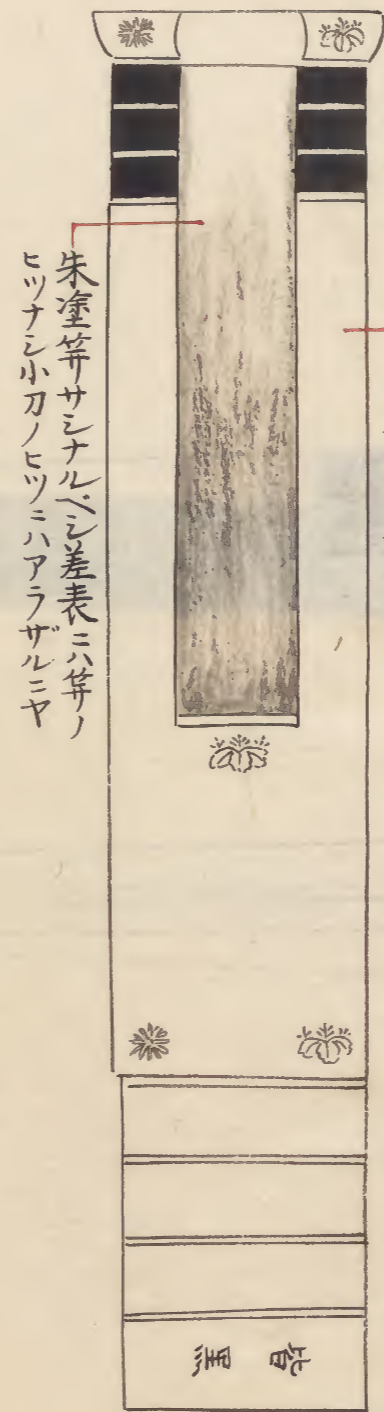 朱塗笄サシナルベシ差表ニハ笄ノ
ヒツナシ小刀ノヒツニハアラザルニヤ
皆黒